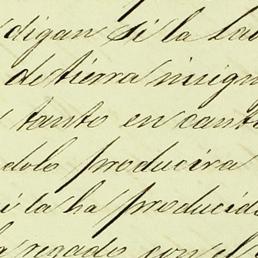 digan si la
de tierra insign
tanto en cant
dolo producira
i la ha producid
regado con el